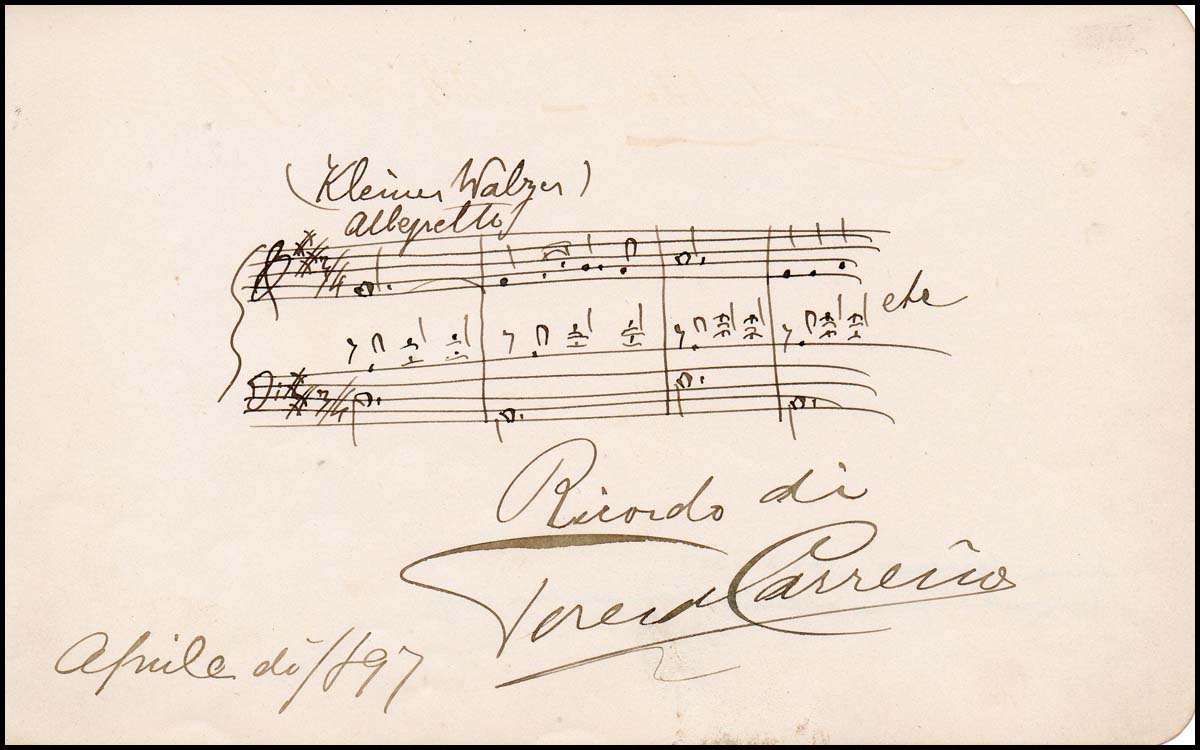 (Kleiner Walzer)
Allegretto
3/4
etc
3/4
Ricordo di
Teresa Carreño
Aprile di 1897